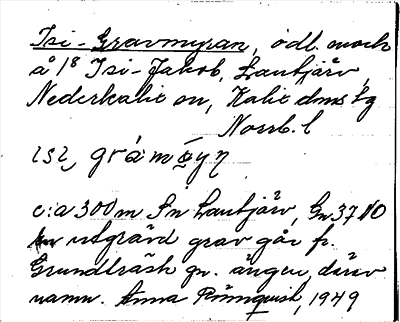 Isi-Gravmyran, odl. mark
å 1/8 Isi-Jakob, Lantjärv,
Nederkalix sn, Kalix dms tg
Norrb. l
ɩsɩ, grámo̱yŋ
c:a 300 m Sn Lantjärv, Gn 37 NO
utgrävd grav går fr.
Grundträsk gn. ängen, därav
namn. Anna Rönnquist, 1949